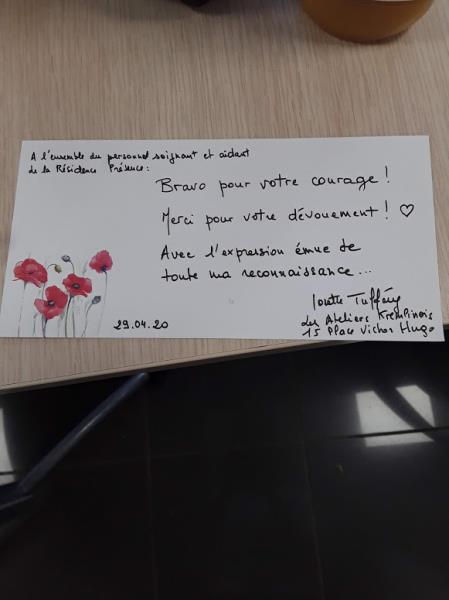 A l'ensemble du personnel soignant et aidant
de la Résidence Présence :
Bravo pour votre courage !
Merci pour votre dévouement ! ♡
Avec l'expression émue de
toute ma reconnaissance...
Les Ateliers Kremlinois
15 Place Victor Hugo
29.04.20